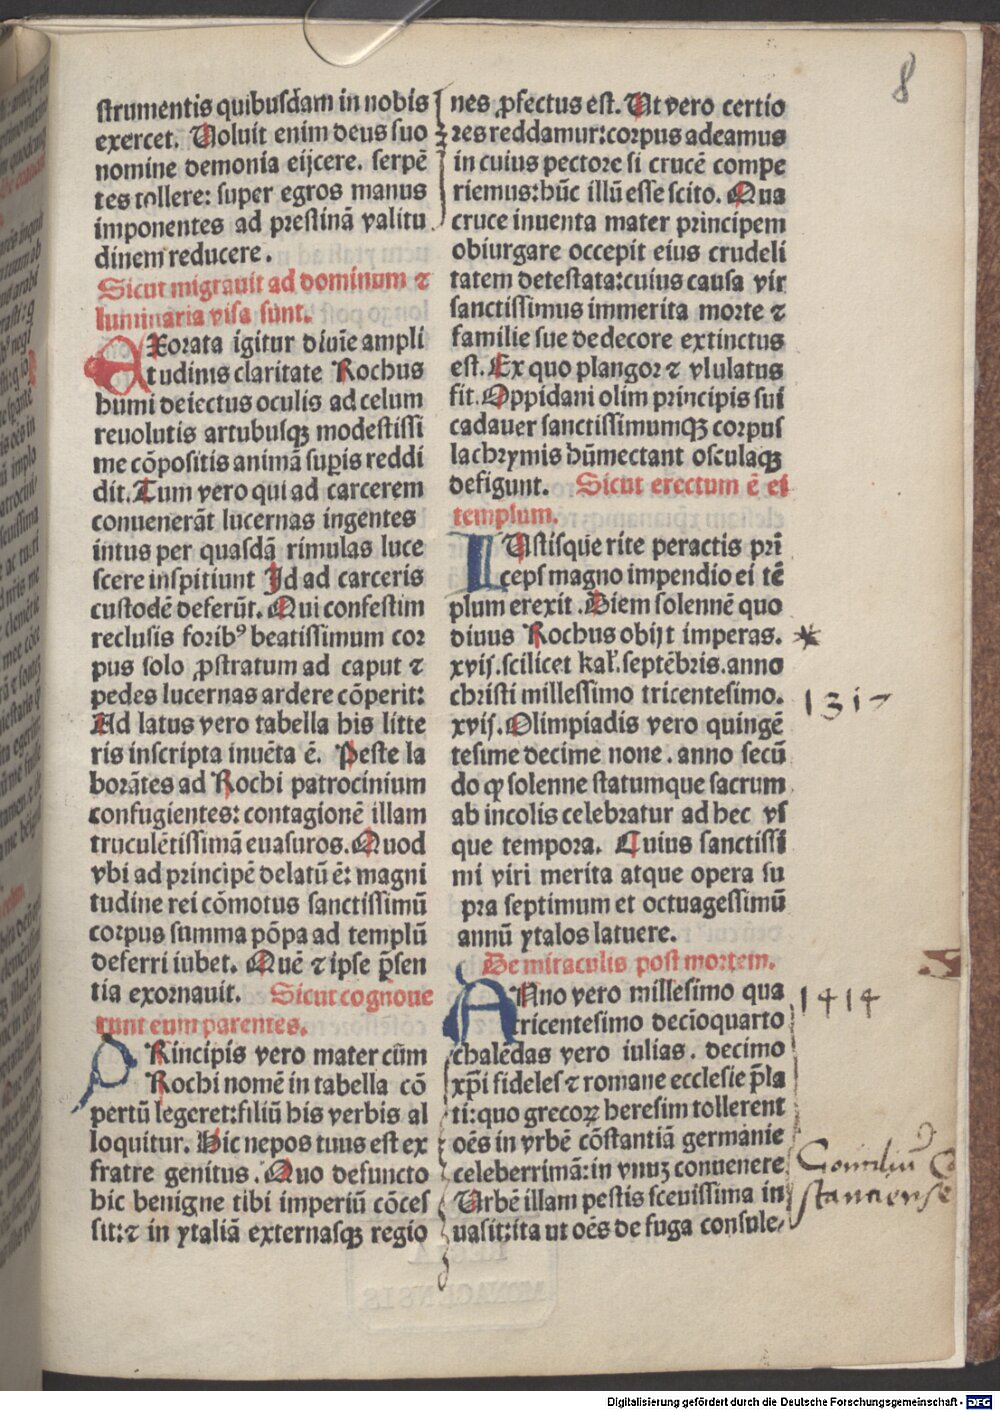 8
strumentis quibusdam in nobis
exercet. Uoluit enim deus suo
nomine demonia eijcere. serpē
tes tollere: super egros manus
imponentes ad prestinā valitu
dinem reducere.
Sicut migrauit ad dominum ⁊
luminaria visa sunt.
EXorata igitur diuīe ampli
tudinis claritate Rochus
humi deiectus oculis ad celum
reuolutis artubusqꝫ modestissi
me cōpositis animā suꝑis reddi
dit. Tum vero qui ad carcerem
conuenerāt lucernas ingentes
intus per quasdā rimulas luce
scere inspitiunt Id ad carceris
custodē deferūt. Qui confestim
reclusis forib⁹ beatissimum cor
pus solo ꝓstratum ad caput ⁊
pedes lucernas ardere cōperit:
Ad latus vero tabella his litte
ris inscripta inuēta ē. Peste la
borātes ad Rochi patrocinium
confugientes: contagionē illam
truculētissimā euasuros. Quod
vbi ad principē delatū ē: magni
tudine rei cōmotus sanctissimū
corpus summa pōpa ad templū
deferri iubet. Quē ⁊ ipse p̄sen
tia exornauit. Sicut cognoue
runt eum parentes.
PRincipis vero mater cūm
Rochi nomē in tabella cō
pertū legeret: filiū his verbis al
loquitur. Hic nepos tuus est ex
fratre genitus. Quo defuncto
hic benigne tibi imperiū cōces
sit: ⁊ in ytaliā externasqꝫ regio
nes ꝓfectus est. Ut vero certio
res reddamur: corpus adeamus
in cuius pectore si crucē compe
riemus: hūc illū esse scito. Qua
cruce inuenta mater principem
obiurgare occepit eius crudeli
tatem detestata: cuius causa vir
sanctissimus immerita morte ⁊
familie sue dedecore extinctus
est. Ex quo plangor ⁊ vlulatus
fit. Oppidani olim principis sui
cadauer sanctissimumqꝫ corpus
lachrymis hūmectant osculaqꝫ
defigunt. Sicut erectum ē ei
templum.
IUstisque rite peractis pri
ceps magno impendio ei tē
plum erexit. Diem solennē quo
diuus Rochus obijt imperas.
xvij. scilicet kal. septēbris. anno
christi millessimo tricentesimo.
1317
xvij. Olimpiadis vero quingē
tesime decime none. anno secū
do qꝫ solenne statumque sacrum
ab incolis celebratur ad hec vs
que tempora. Cuius sanctissi
mi viri merita atque opera su
pra septimum et octuagessimū
annū ytalos latuere.
De miraculis post mortem.
ANno vero millesimo qua
1414
tricentesimo decīoquarto
chalēdas vero iulias. decimo
xp̄i fideles ⁊ romane ecclesie p̄la
ti: quo grecoꝝ heresim tollerent
oēs in vrbē cōstantiā germanie
celeberrimā: in vnuꝫ conuenere
Urbē illam pestis sceuissima in
uasit: ita ut oēs de fuga consule,
Conciliū Co
stanciense
Digitalisierung gefördert durch die Deutsche Forschungsgemeinschaft - DFG